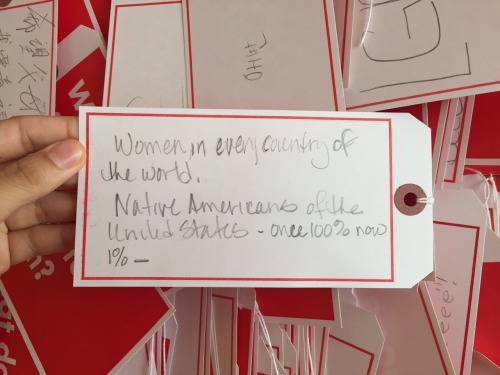 Women, in every country of
the world.
Native Americans of the
United States - once 100% now
1% –